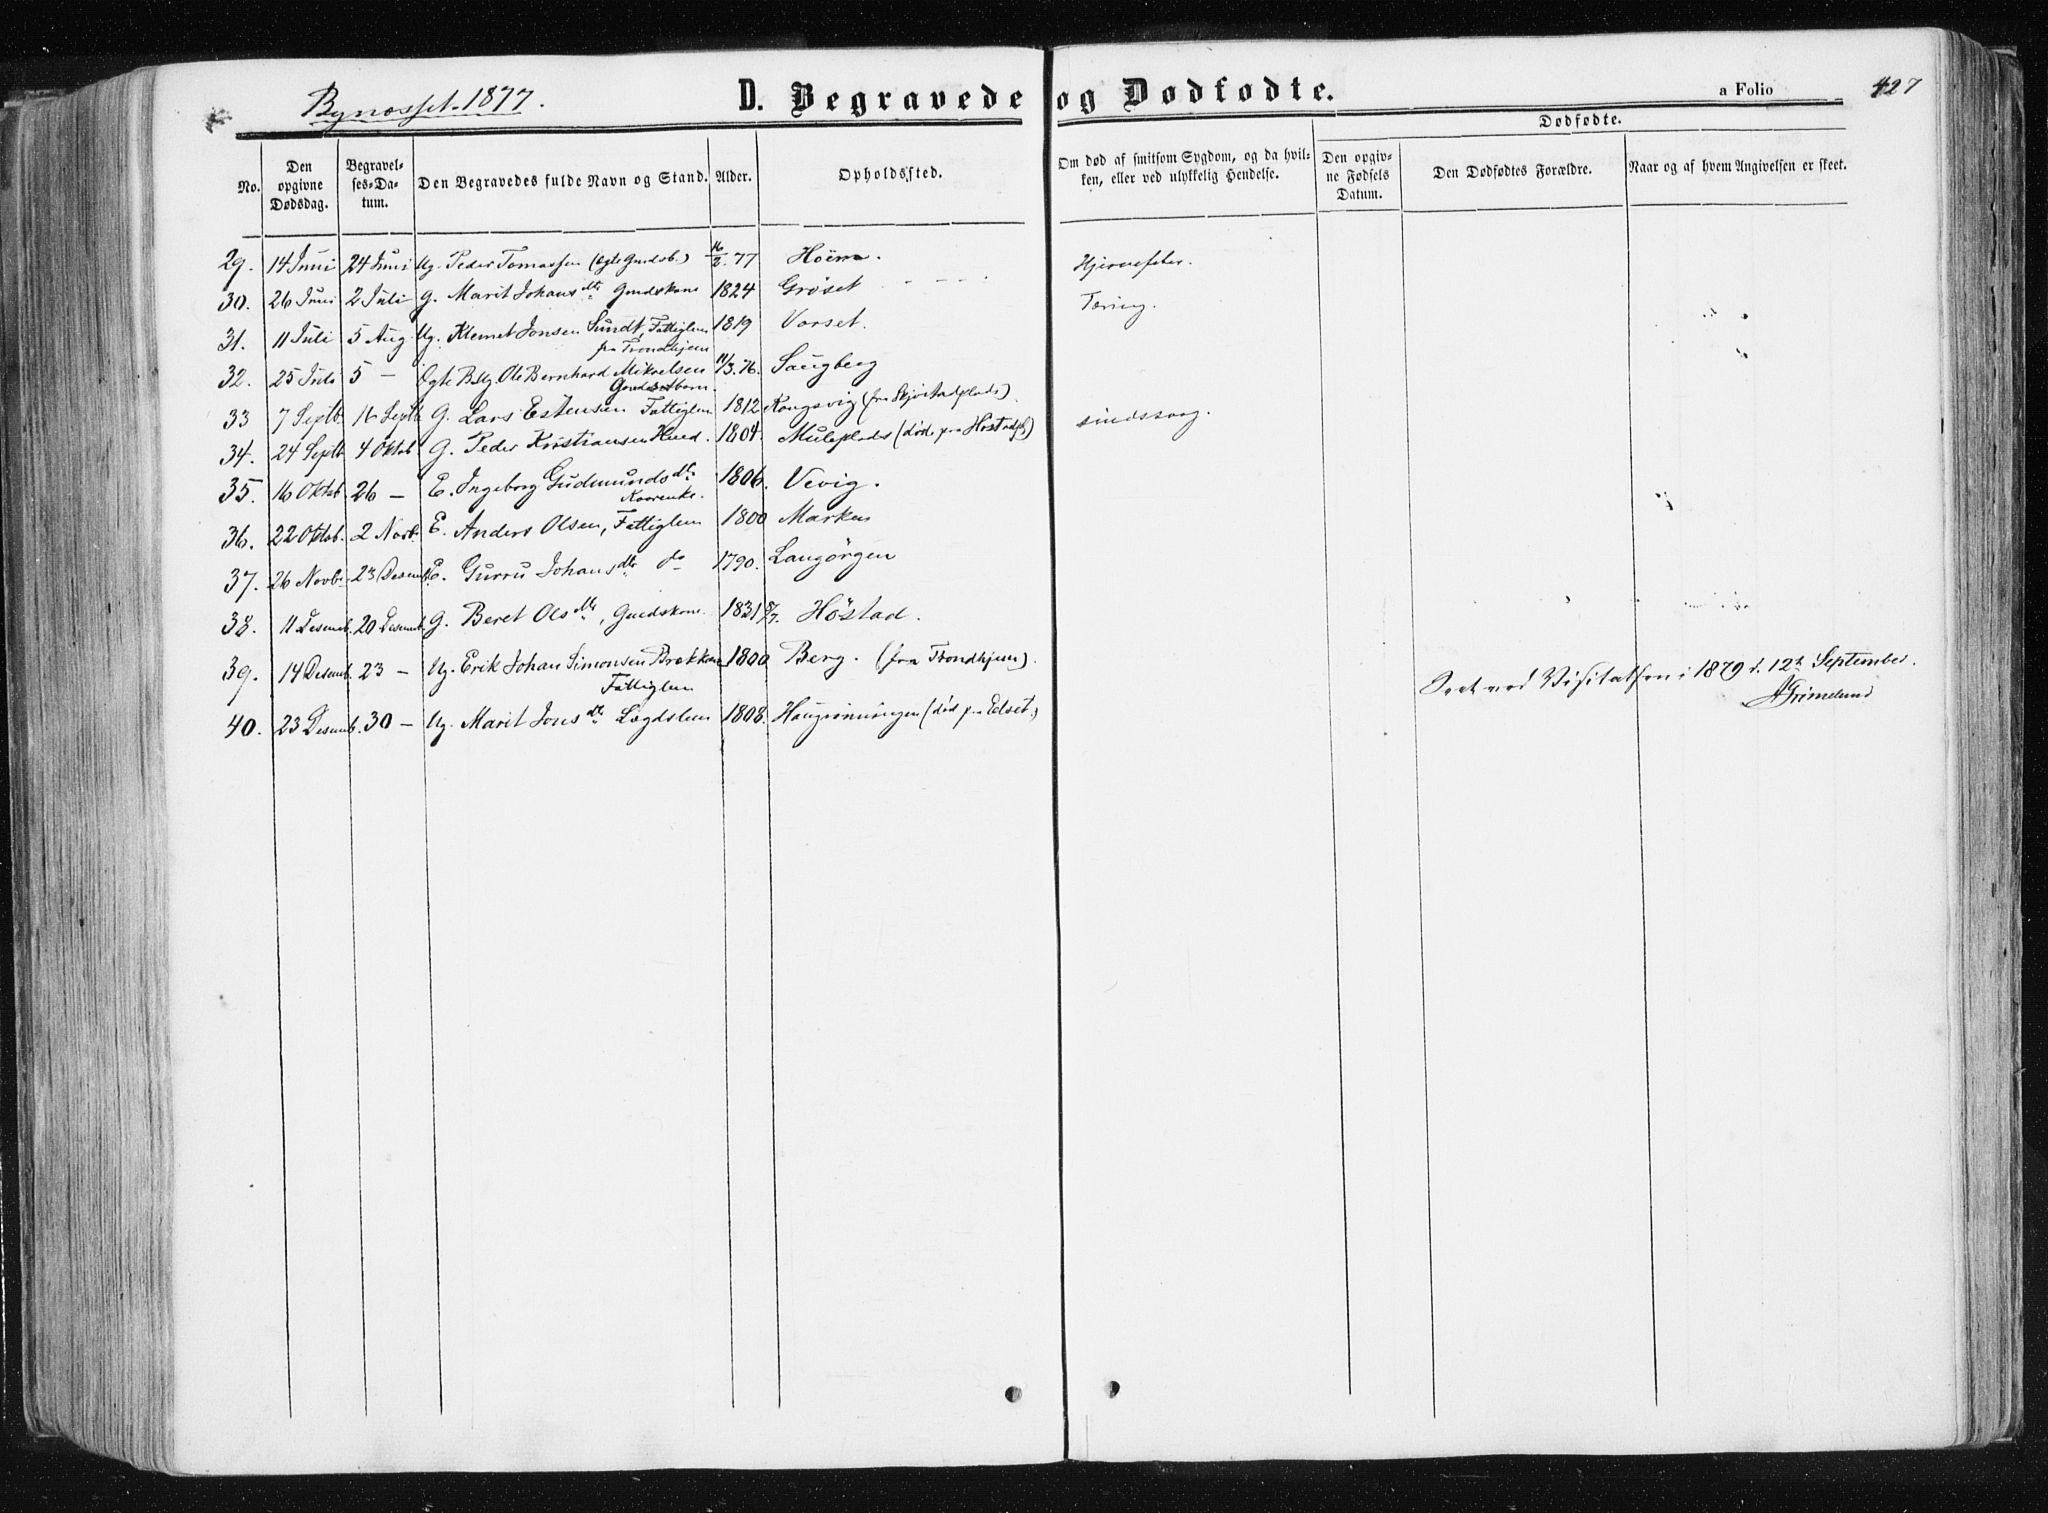 Bynæsset. 1877.
D. Begravede og Dødfødte.
a Folio 427
No.
Den opgivne Dødsdag.
Begravelses-Datum.
Den Begravedes fulde Navn og Stand.
Alder.
Opholdssted.
Om død af smitsom Sygdom, og da hvilken, eller ved ulykkelig Hendelse.
Dødfødte.
Den opgivne Fødsels Datum.
Den Dødfødtes Forældre.
Naar og af hvem Angivelsen er skeet.
29. 14 Juni 24 Juni Ug. Peder Tomassen (Ægte Gmdsb.) 16/2.77 Höiem. Hjernefeber.
30. 26 Juni 2 Juli G. Marit Johansdtr Gmdskone 1824 Gröset Tæring.
31. 11 Juli 5 Aug. Ug. Klemet Jonsen Sundt, Fattiglem 1819 Vorset.
fra Trondhjem
32. 25 Juli 5 — Ægte B. Ug. Ole Bernhard Mikaelsen 11/3.76. Saugberg
Gmdsbarn.
33 7 Septb. 16 Septb G. Lars Estensen Fattiglem 1812 Kongsvig (fra Skjöstadplads). sindssvag.
34. 24 Septb 4 Oktob. G. Peder Kristiansen Huus. 1804. Muleplads (död paa Höstadpl.)
35. 16 Oktob. 26 — E. Ingeborg Gudmundsdtr. 1806. Vevig.
Kaarenke.
36. 22 Oktob. 2 Novb. E. Anders Olsen, Fattiglem 1800 Marken
37. 26 Novbr 23 Desemb. E. Gurru Johansdtr. do 1790. Langörgen
38. 11 Desemb. 20 Desemb. G. Beret Olsdtr, Gmdskone. 1831 8/7. Höstad.
39. 14 Desemb. 23 — Ug. Erik Johan Simonsen Brækkan 1800 Berg. (fra Trondhjem).
Fattiglem
Seet ved Visitatsen i 1879 d. 12te September.
AGrimelund
40. 23 Desemb. 30 — Ug. Marit Jonsdtr Lægdslem 1808. (död paa Elset.)